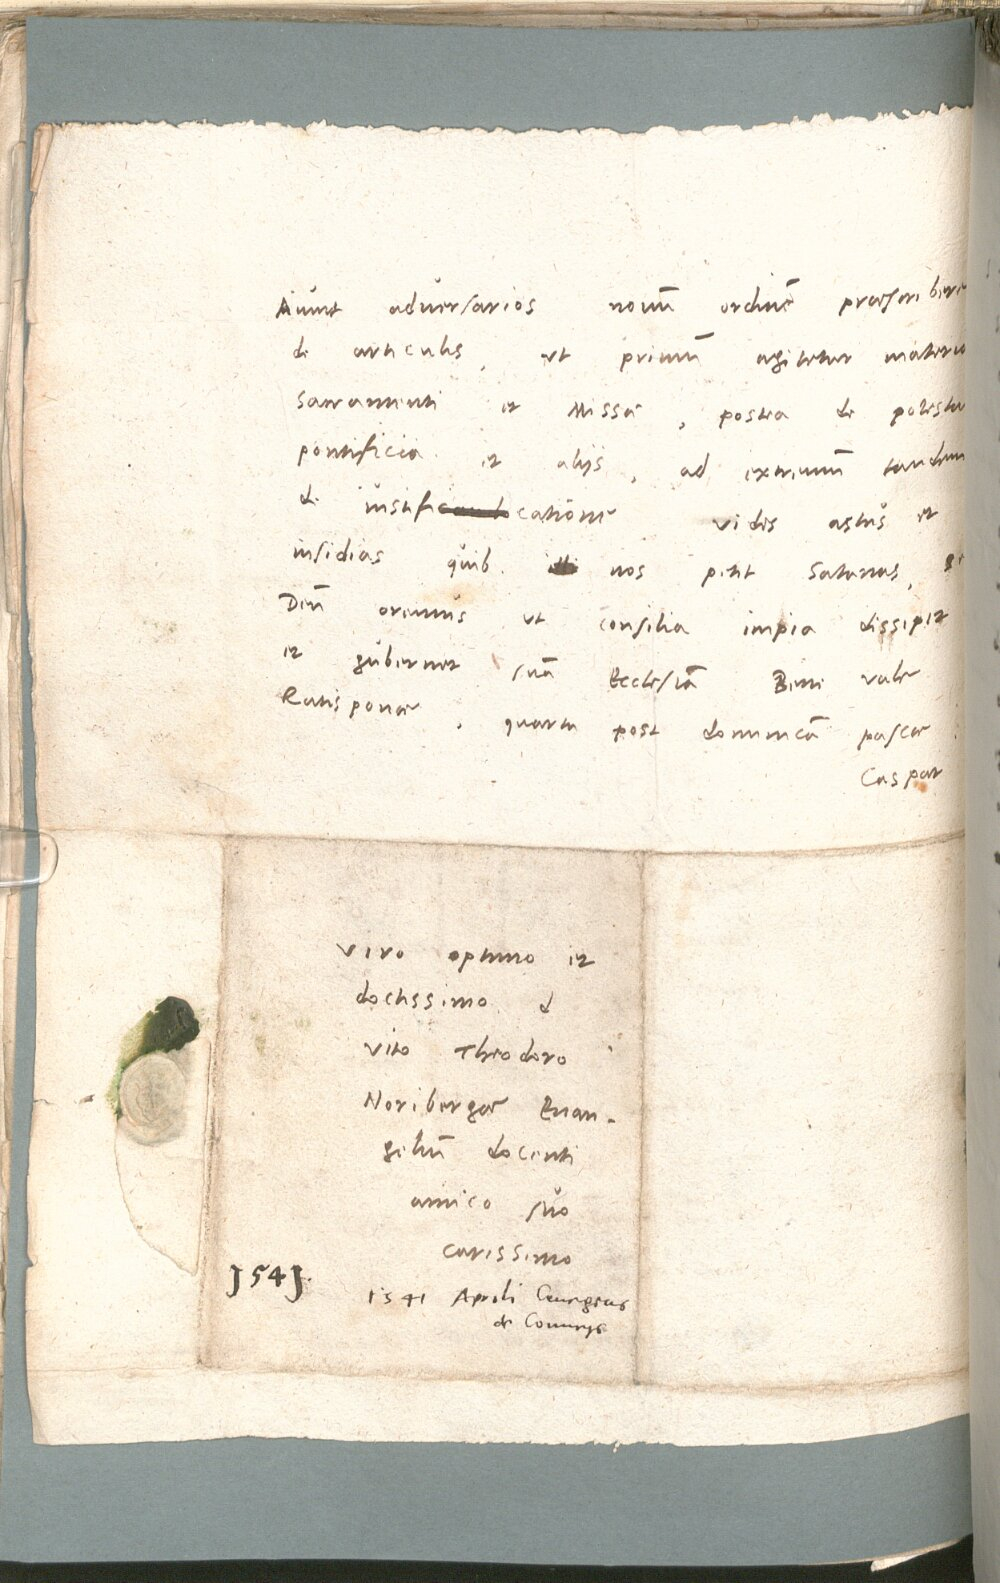 Aiunt adversarios novū ordinē praescribere
de articulis, ut primū agitetur materia
Sacramenti et Missae, postea de potesta
pontificia et aliis, ad extremū tandem
de iustificatione vides astus et
insidias quib. nos petit Satanas,
Deū oremus ut consilia impia dissipet
et gubernet suā Ecclesiā Bene vale
Ratisponae, quarta post dominicā pascae
Caspar
Viro optimo et
doctissimo d
Vito Theodoro
Noribergae Euan-
geliū docenti
amico suo
carissimo
1541.
1541 Aprili
de